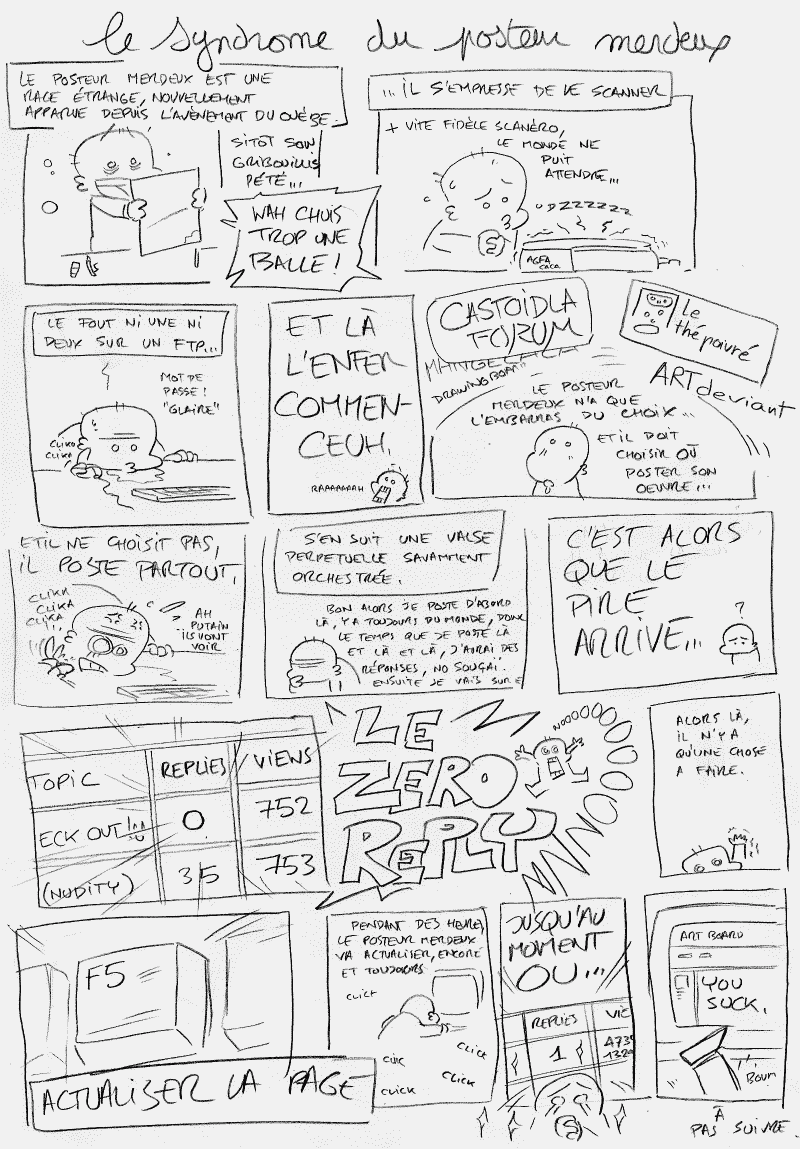 le syndrome du posteur merdeux
LE POSTEUR MERDEUX EST UNE
RACE ÉTRANGE, NOUVELLEMENT
APPARUE DEPUIS L'AVÈNEMENT DU OUÉBE.
SITÔT SON
GRIBOUILLIS
PÉTÉ...
WAH CHUIS
TROP UNE
BALLE !
... IL S'EMPRESSE DE LE SCANNER
+ VITE FIDÈLE SCANÉRO,
LE MONDE NE
PUIT
ATTENDRE...
DZZZZZZZ
AGFA
CACA
LE FOUT NI UNE NI
DEUX SUR UN FTP...
MOT DE
PASSE !
"GLAIRE"
CLIKA
CLIKA
ET LÀ
L'ENFER
COMMEN-
CEUH.
RAAAAAAAH
CASTOIDLA
FORUM
MANGECACA
DRAWINGBOARD
Le
thépoivré
ARTdeviant
LE POSTEUR
MERDEUX N'A QUE
L'EMBARRAS DU CHOIX...
ET IL DOIT
CHOISIR OÙ
POSTER SON
OEUVRE...
ET IL NE CHOISIT PAS,
IL POSTE PARTOUT.
CLIKA
CLIKA
CLIKA
AH
PUTAIN
ILS VONT
VOIR
S'EN SUIT UNE VALSE
PERPETUELLE SAVAMMENT
ORCHESTRÉE.
BON ALORS JE POSTE D'ABORD
LÀ, Y A TOUJOURS DU MONDE, DONC
LE TEMPS QUE JE POSTE LÀ
ET LÀ ET LÀ, J'AURAI DES
RÉPONSES, NO SOUÇAI.
ENSUITE JE VAIS SUR E
C'EST ALORS
QUE LE
PIRE
ARRIVE...
?
TOPIC
REPLIES
VIENS
ECK OUT !!!
0
752
(NUDITY)
35
753
LE
ZERO
REPLY
NOOOOOOOOOOOOO
ALORS LÀ,
IL N'Y A
QU'UNE CHOSE
A FAIRE.
F5
ACTUALISER LA PAGE
PENDANT DES HEURES,
LE POSTEUR MERDEUX
VA ACTUALISER, ENCORE
ET TOUJOURS
CLICK
CLICK
CLICK
CLICK
CLICK
JUSQU'AU
MOMENT
OU...
REPLIES
VIE
1
473
132
ART BOARD
YOU
SUCK.
BOUM
À
PAS SUIVRE.